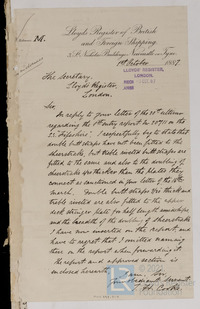 Lloyds Register of British
and Foreign Shipping
St. Nicholas Buildings, Newcastle on Tyne
1st October 1887
LLOYDS REGISTER,
LONDON.
The Secretary,
Lloyds Register,
London.
Sir
In reply to your letter of the
regarding the 1st entry report No
I respectfully beg to state that
double butt straps have not been fitted to the
sheerstrake, but treble riveted butt straps are
fitted to the same and also to the doubling of
sheerstrake the thicker than the plates they
connect as sanctioned in your letter of the
March. Double butt straps thick and
treble riveted are also fitted to the upper
deck stringer plate for half length amidships
and the breadth of the doubling of sheerstrake
I have now inserted on the report, and
have to regret that I omitted naming
them on the report when forwarding it.
The report and approved section is
enclosed herewith
I am, Sir,
Your Obedient Servant